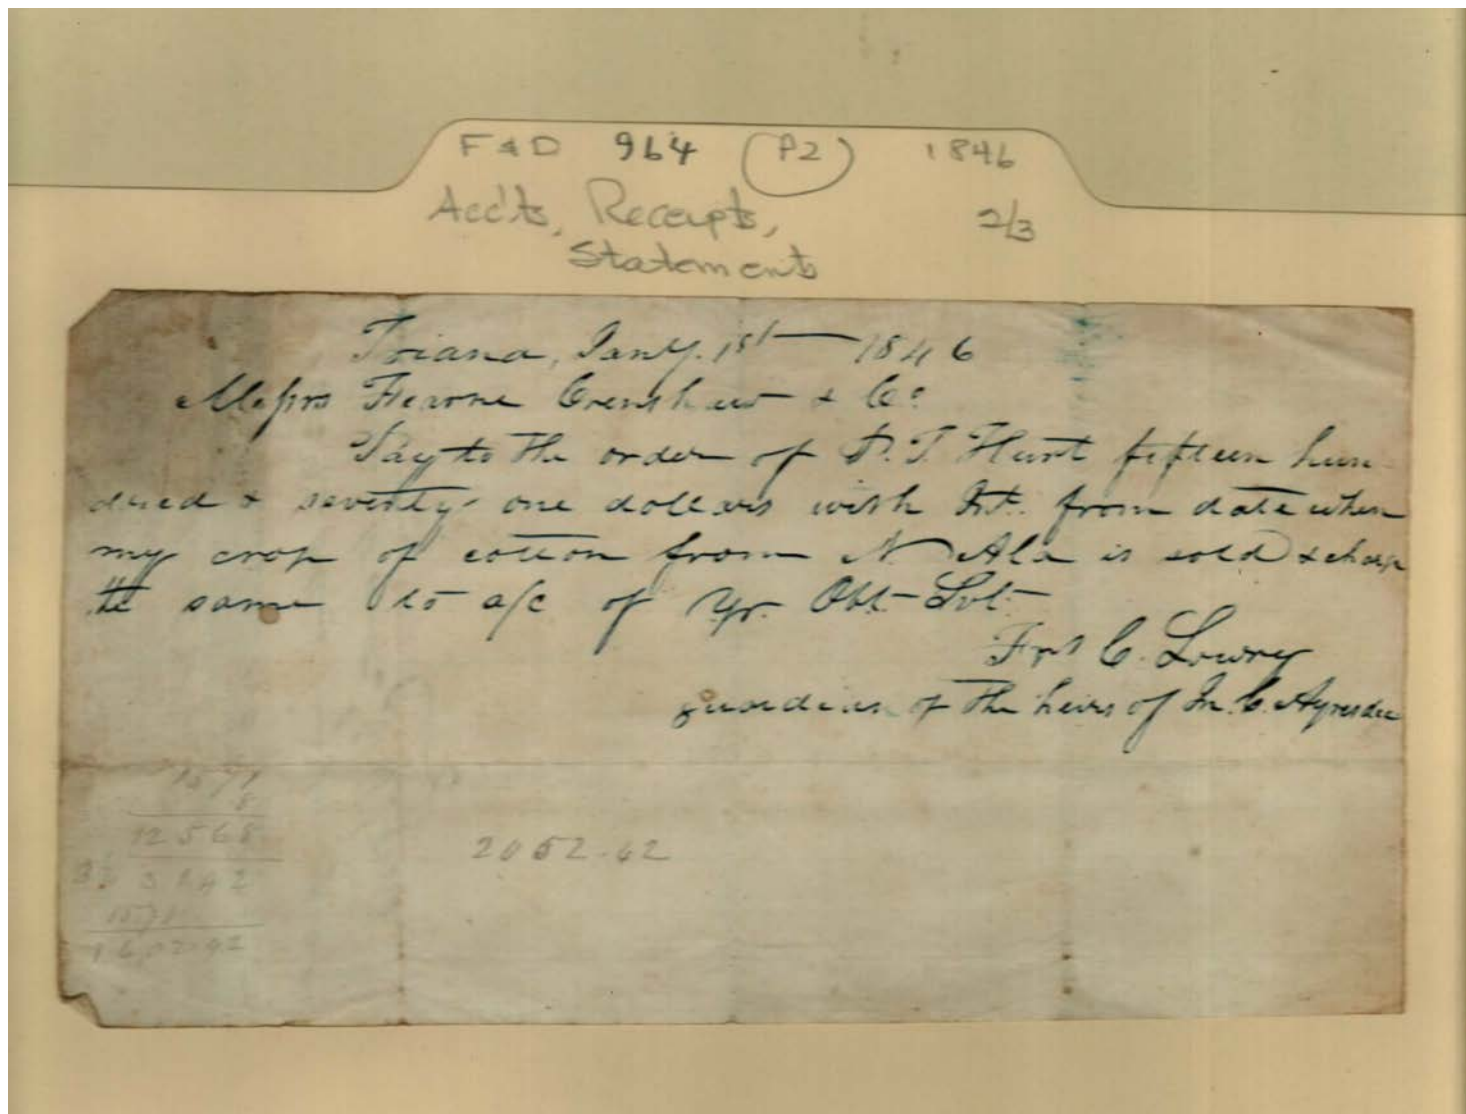 F & D 964 (P2) 1846
Acc'ts, Receipts, 2/3
Statements
Triana, Jany. 1st 1846
Messrs Fearne Crenshaw & Co.
Pay to the order of P. T. Hurt fifteen hun
dred & seventy one dollars with Int. from date when
my crop of cotton from N Ala is sold & charge
the same to a/c of Yr. Obt Svt
C. Lowry
guardian of the heirs of Jn. C. Ayres dec
1571
8
12568
3142
1571
1602.42
2052.42